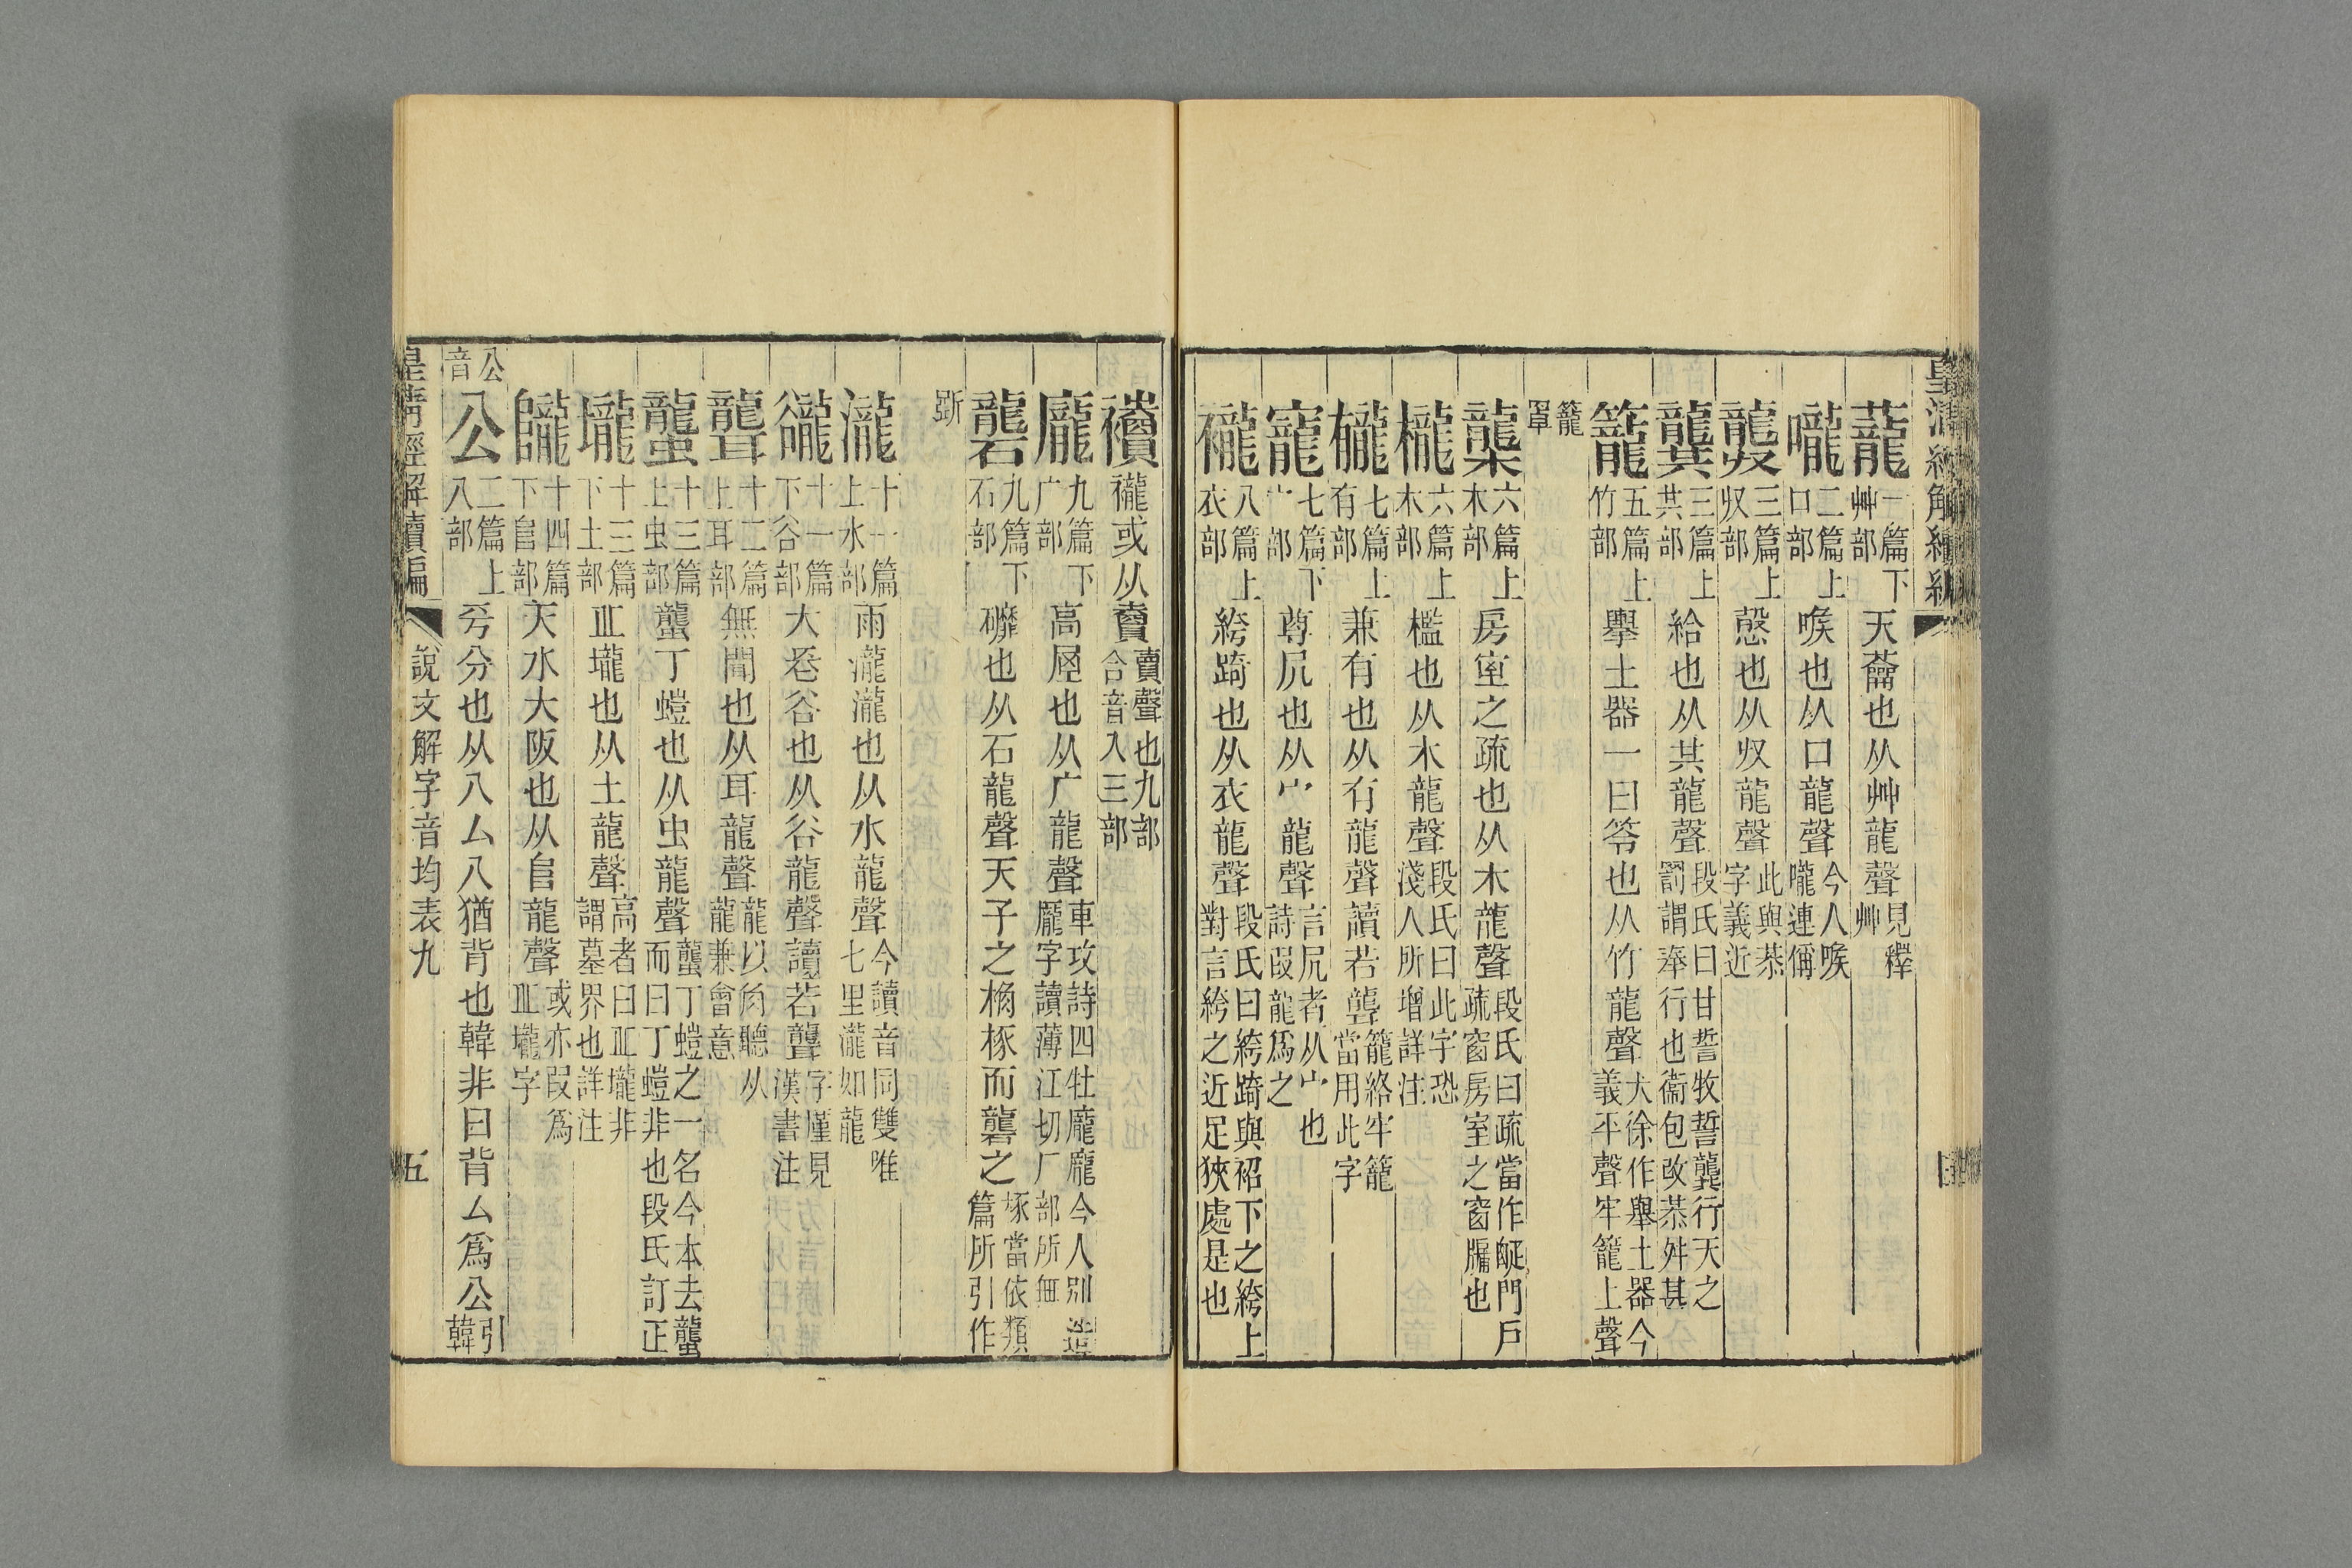 蘢一篇下艸部天蘥也从艸龍聲見䆁艸
嚨二篇上口部喉也从口龍聲今人喉嚨連偁
龏三篇上収部愨也从収龍聲此與恭字義近
龔三篇上共部給也从共龍聲段氏曰甘誓牧誓龔行天之罰謂奉行也衞包改恭舛甚
籠五篇上竹部舉土器一曰笭也从竹龍聲大徐作舉土器今義平聲牢籠上聲
籠罩
龒六篇上木部房室之疏也从木龍聲段氏曰疏當作𤕟門戶疏窗房室之窗牖也
櫳六篇上木部檻也从木龍聲段氏曰此字恐淺人所增詳注
龓七篇上有部兼有也从有龍聲讀若聾籠絡牢籠當用此字
寵七篇下宀部尊凥也从宀龍聲言凥者从宀也詩叚龍爲之
襱八篇上衣部絝踦也从衣龍聲段氏曰絝踦與袑下之絝上對言絝之近足狹處是也
襩襱或从賣賣聲也九部合音入三部
龐九篇下广部高屋也从广龍聲車攻詩四牡龐龐今人別造龎字讀薄江切厂部所無
礱九篇下石部䃺也从石龍聲天子之桷椓而礱之椓當依類篇所引作
斲
瀧十一篇上水部雨瀧瀧也从水龍聲今讀音同雙唯七里瀧如龍
谾十一篇下谷部大䜭谷也从谷龍聲讀若聾字僅見漢書注
聾十二篇上耳部無聞也从耳龍聲龍以角聽从龍兼會意
蠪十三篇上虫部蠪丁螘也从虫龍聲蠪丁螘之一名今本去蠪而曰丁螘非也段氏訂正
壠十三篇下土部丘壠也从土龍聲高者曰丘壠非謂墓界也詳注
隴十四篇下𨸏部天水大阪也从𨸏龍聲或亦叚爲丘壠字
公音
公二篇上八部𠔁分也从八厶八猶背也韓非曰背厶爲公引韓
皇清經解續編
說文解字音均表九
五